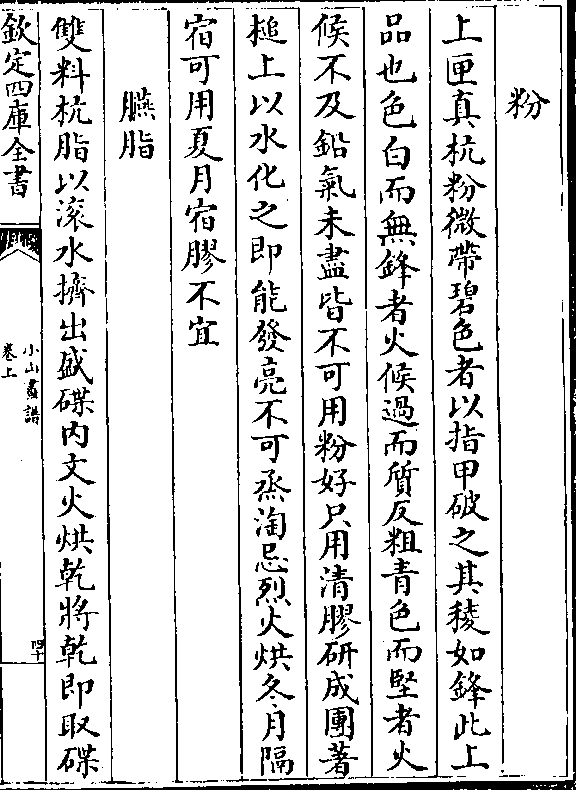 粉
上匣真杭粉微帶碧色者以指甲破之其稜如鋒此上
品也色白而無鋒者火候過而質反粗青色而堅者火
候不及鉛氣未盡皆不可用粉好只用清膠研成團著
槌上以水化之即能發亮不可烝淘忌烈火烘冬月隔
宿可用夏月宿膠不宜
臙脂
雙料杭脂以滚水擠出盛碟内文火烘乾將乾即取碟
欽定四庫全書
小山畫譜
卷上
四十